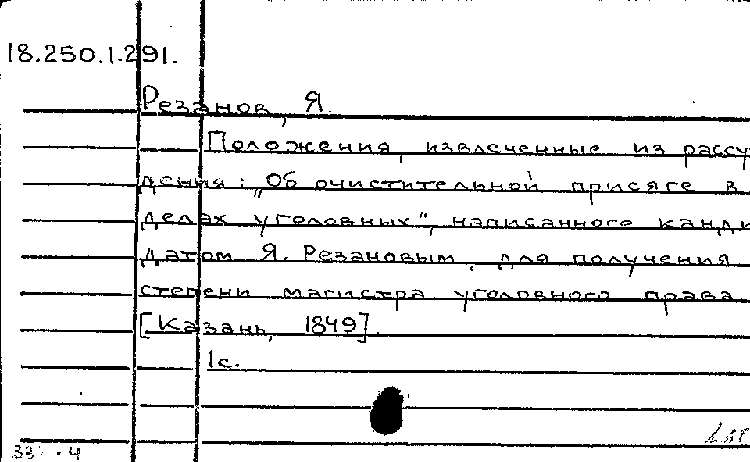 18.250.1.291.
Резанов, Я.
Положения, извлеченные из рассу
дения: „Об очистительной присяге в
делах уголовных", написанного канди
датом Я. Резановым, для получения
степени магистра уголовного права
[Казань, 1849].
1с.